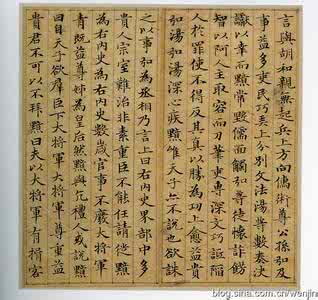 言與胡和親無起兵上方向儒術尊公孫弘及
事益多吏民巧弄上分別文法湯等數奏決
讞以幸而黯常毀儒面觸弘等徒懷詐飾
智以阿人主取容而刀筆吏專深文巧詆陷
人於罪使不得反其真以勝為功上愈益貴
弘湯弘湯深心疾黯雖天子亦不說也欲誅
之以事弘為丞相乃言上曰右內史界部中多
貴人宗室難治非素重臣不能任請徙黯
為右內史數歲官事不廢大將軍
青既益尊姊為皇后然黯與亢禮人或說黯
曰自天子欲群臣下大將軍大將軍尊重益
貴君不可以不拜黯曰夫以大將軍有揖客
blog.sina.com.cn/wenjin